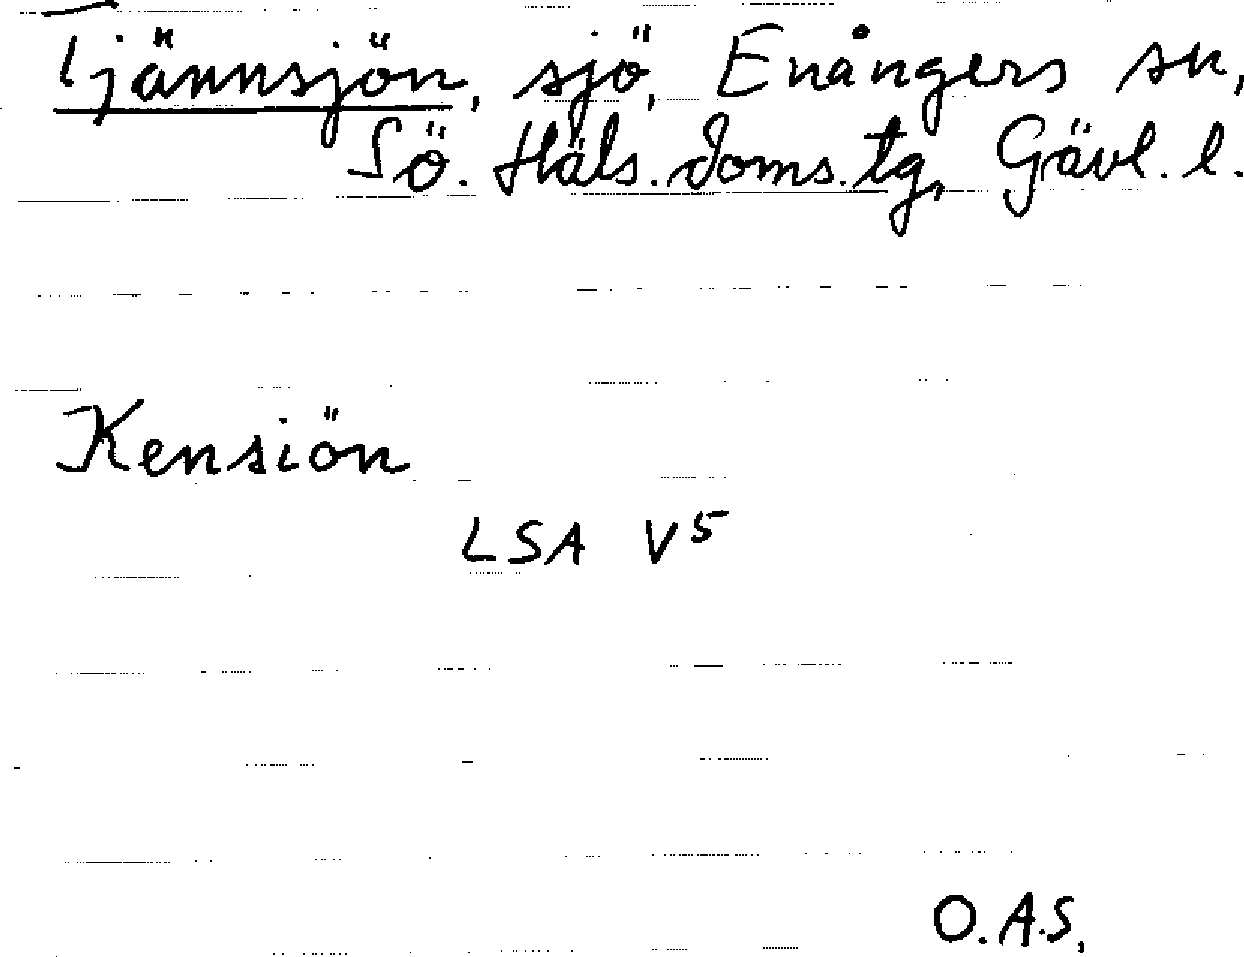 Tjännsjön, sjö, Enångers sn,
Sö. Häls. doms. tg, Gävl. l.
Kensiön
LSA V5
O.A.S.